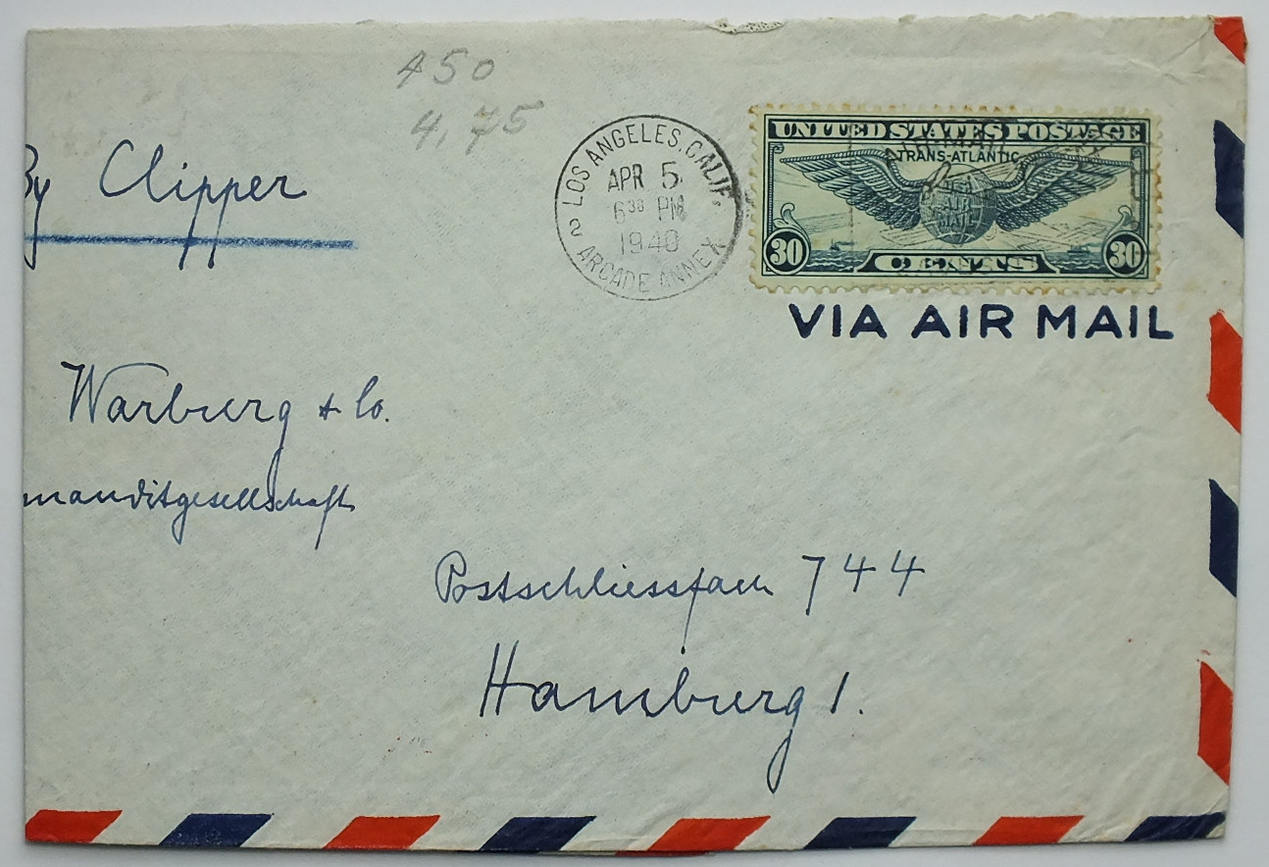 450
4,75
By Clipper
LOS ANGELES, CALIF.
APR 5
6 30 PM
1940
2
ARCADE ANNEX
UNITED STATES POSTAGE
TRANS-ATLANTIC
AIR MAIL
30 CENTS 30
VIA AIR MAIL
Warburg & Co.
manditgesellschaft
Postschliessfach 744
Hamburg 1.